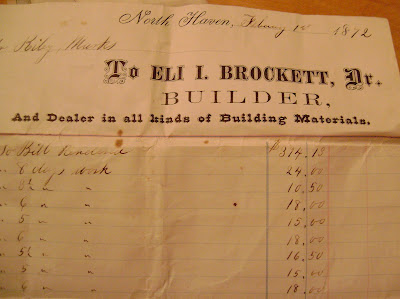 North Haven, February 1st 1872
To ELI I. BROCKETT, Dr.
BUILDER,
And Dealer in all kinds of Building Materials.
To Bill Rendered $ 314.13
" 8 days work 24.00
" " " 10.50
" 6 " " 18.00
" 5 " " 15.00
" 6 " " 18.00
" 5½ " " 16.50
" 5 " " 15.00
" 6 " " 18.00